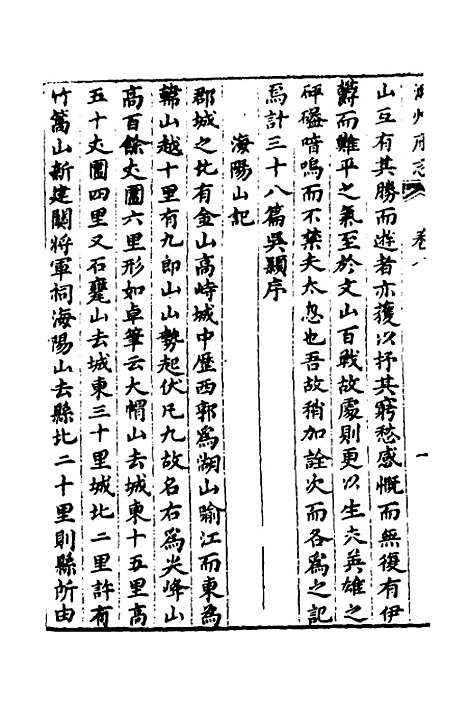 潮州府志 卷八 一
山互有其勝而遊者亦復以抒其窮愁感慨而無復有伊
欝而難平之氣至於文山百戰故處則更以生夫英雄之
砰礚喑嗚而不禁夫太息也吾故稍加詮次而各為之記
焉計三十八篇吳顥序
海陽山記
郡城之北有金山高峙城中歴西郭為湖山踰江而東為
韓山越十里有九郎山山勢起伏凡九故名右為尖峰山
高百餘丈圍六里形如卓筆云大帽山去城東十五里高
五十丈圍四里又石甕山去城東三十里城北二里許有
竹篙山新建關將軍祠海陽山去縣北二十里則縣所由